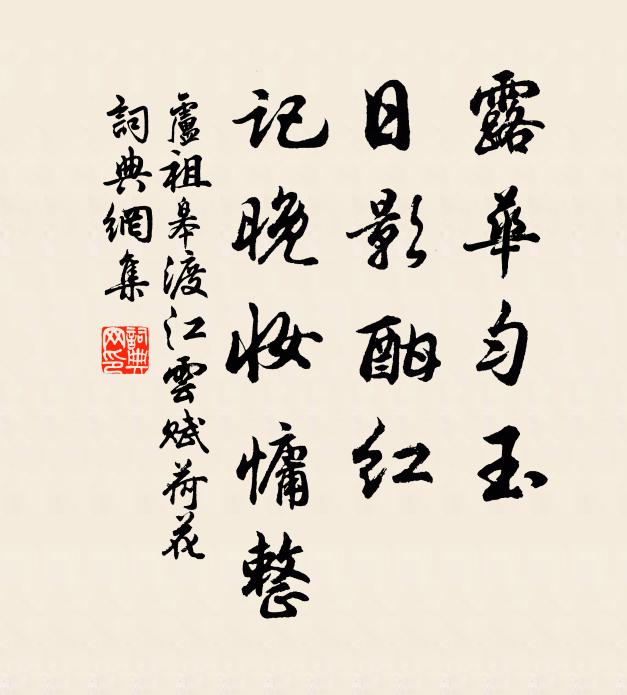 露華勻玉
日影酣红
記晚妆慵整
盧祖皋渡江雲赋荷花
詞典網集
詞典
网印